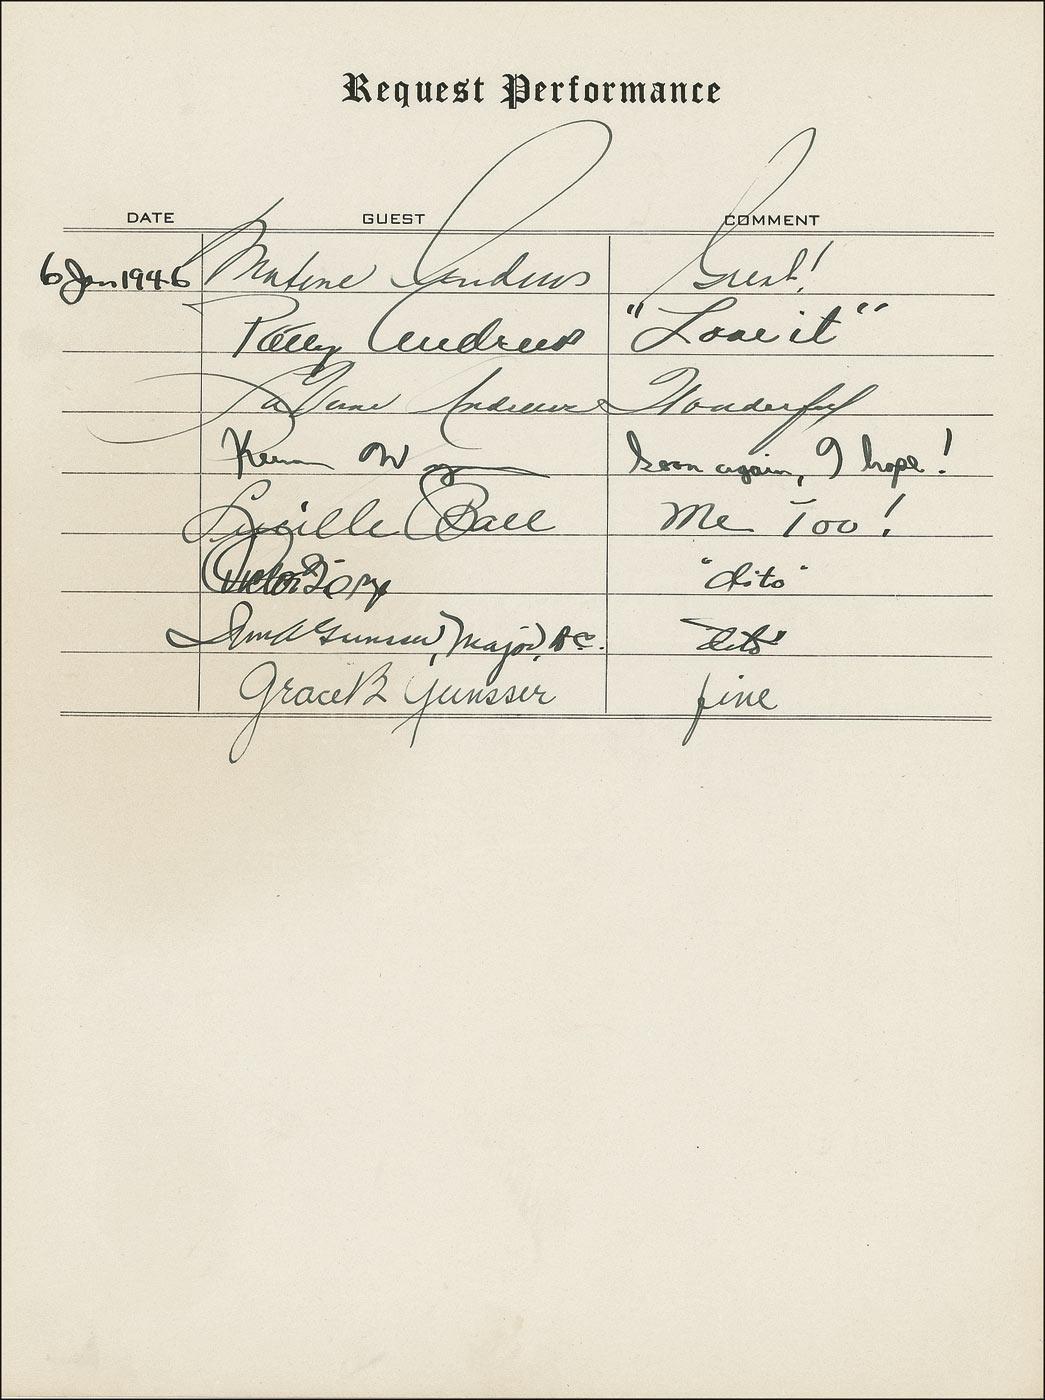 Request Performance
DATE GUEST COMMENT
6 Jan 1946 Maxene Andrews Great!
Patty Andrews "Love it"
LaVerne Andrews Wonderful
Keenan Wynn Soon again, I hope!
Lucille Ball Me Too!
Victor Borge "dito"
Gunsser, Major, "dito"
Grace B Gunsser fine